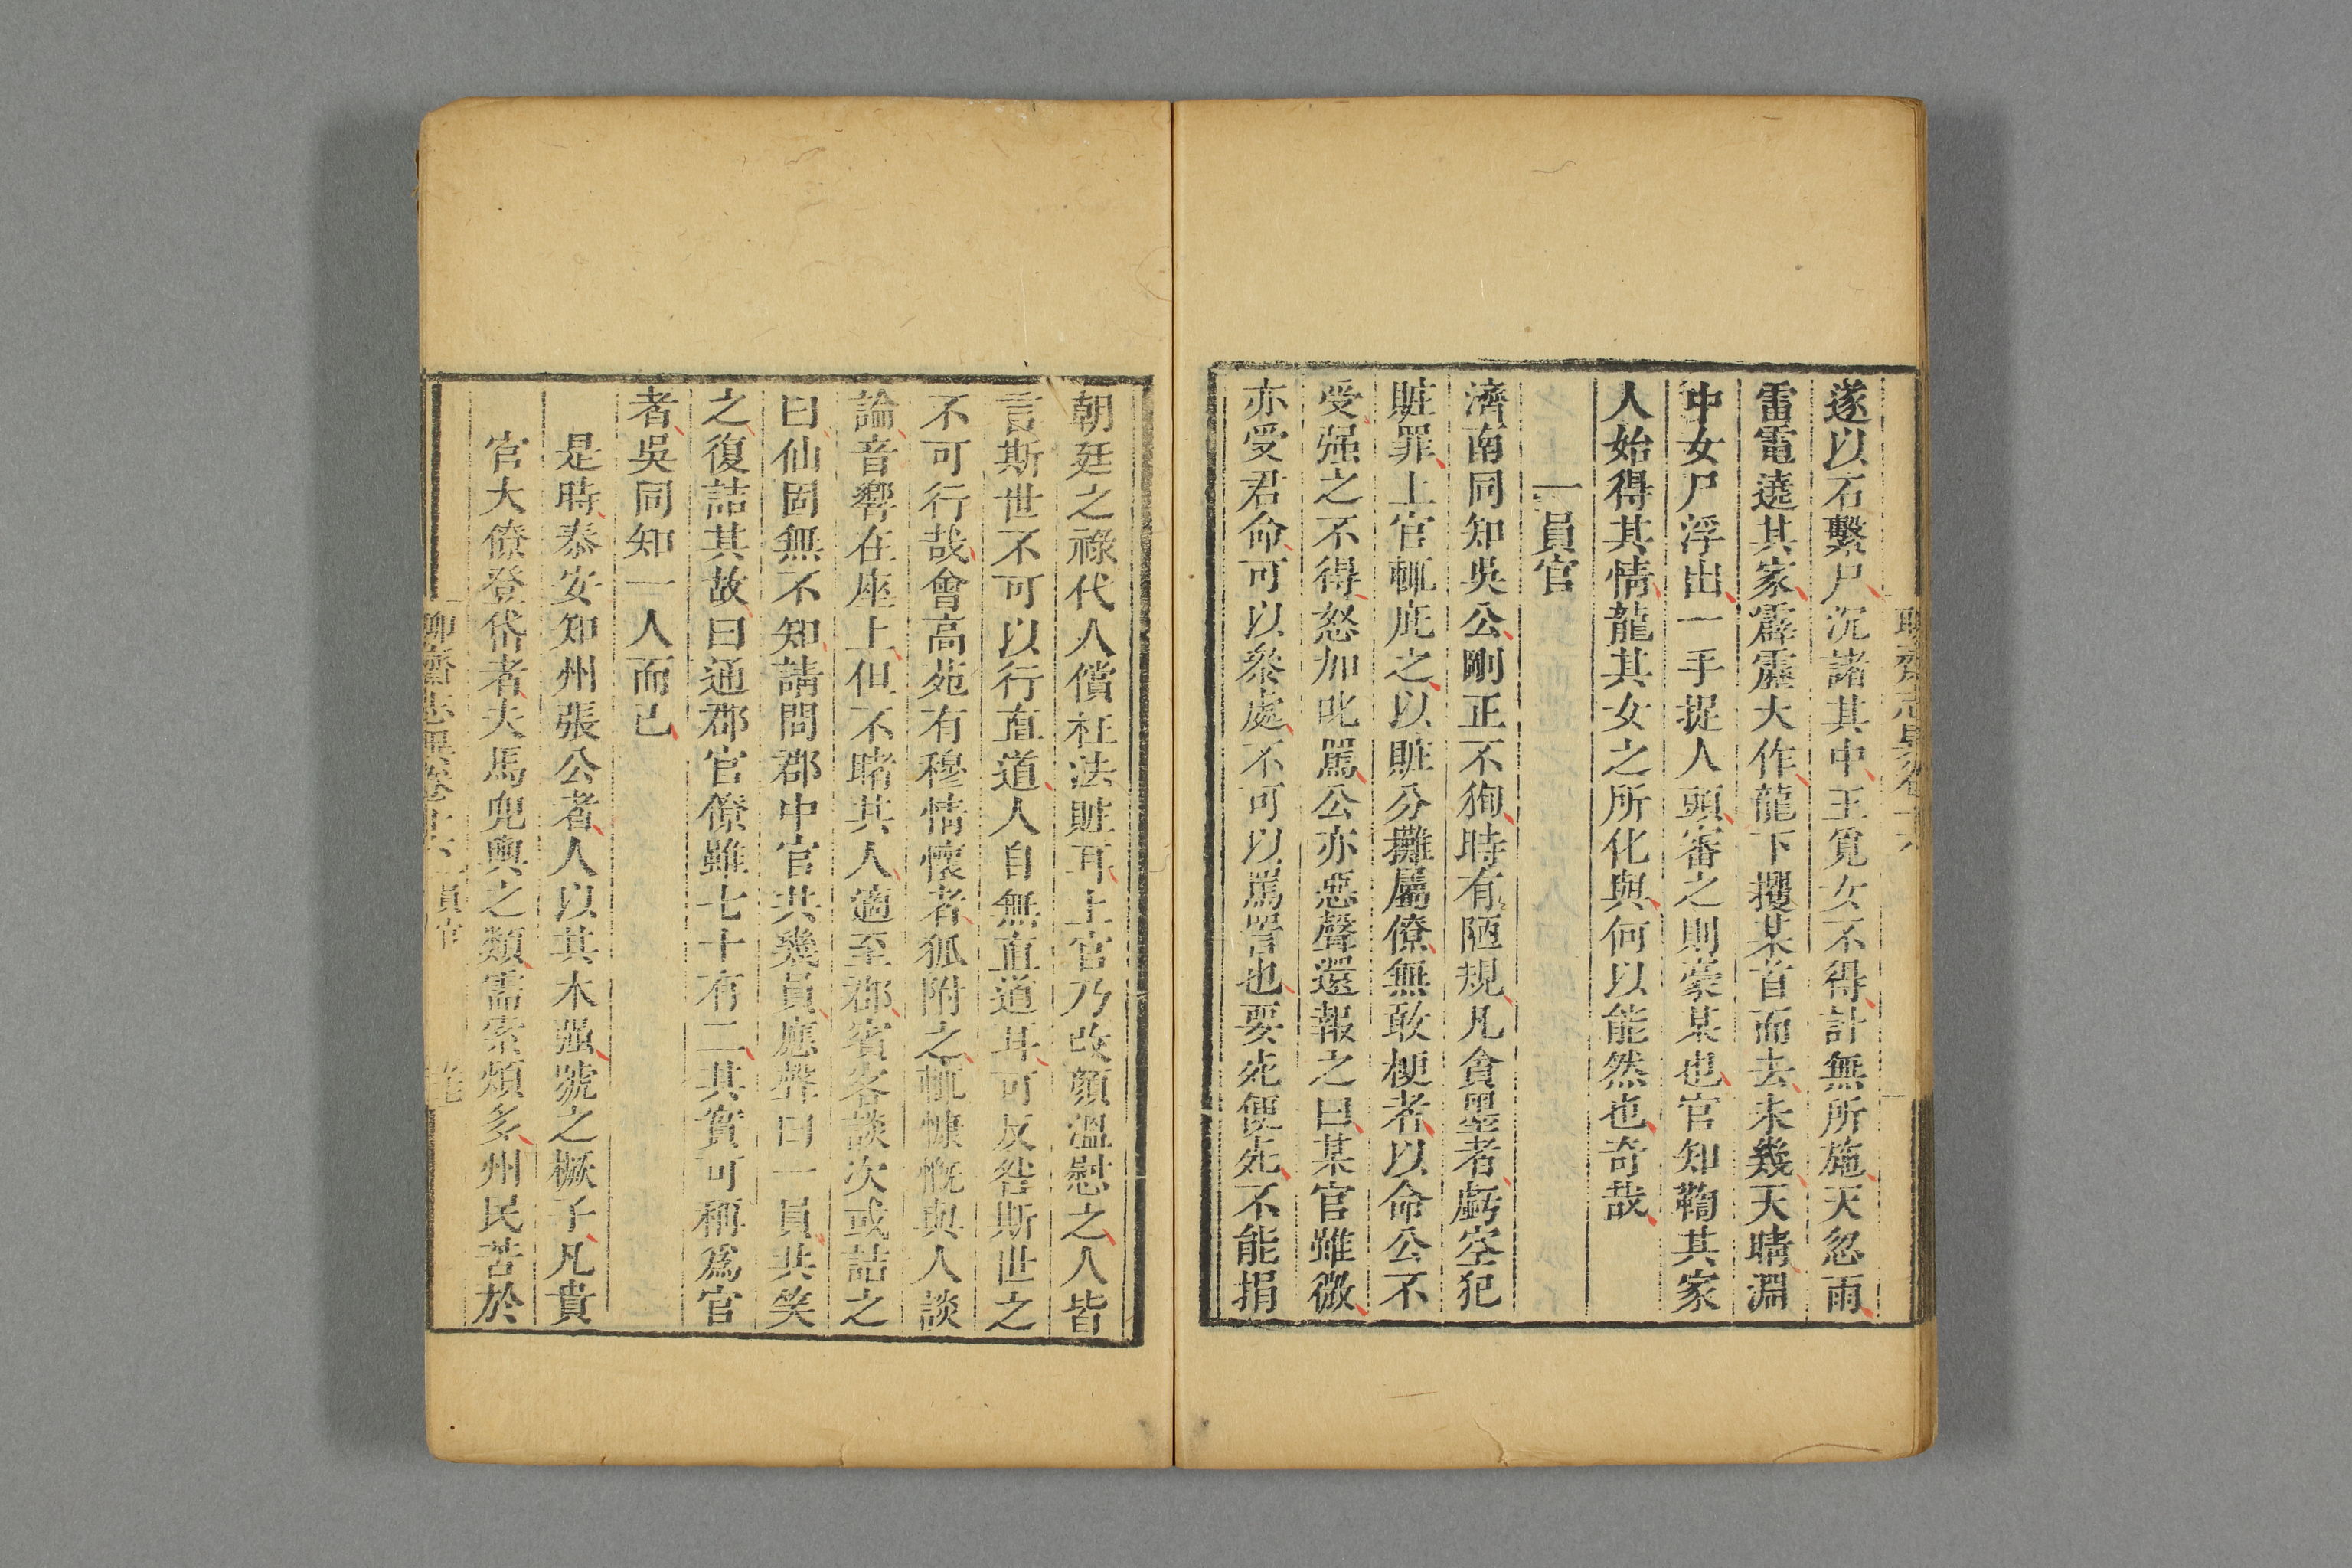 遂以石繫尸沉諸其中王覓女不得計無所施天忽雨
雷電遶其家霹靂大作龍下攫某首而去未幾天晴淵
中女尸浮出一手捉人頭審之則豪某也官知鞫其家
人始得其情龍其女之所化與何以能然也奇哉
一員官
濟南同知吳公剛正不狥時有陋規凡貪墨者虧空犯
贓罪上官輒庇之以贓分攤屬僚無敢梗者以命公不
受强之不得怒加叱罵公亦惡聲還報之曰某官雖微
亦受君命可以叅處不可以罵詈也要死便死不能捐
朝廷之祿代人償枉法贓耳上官乃改顏溫慰之人皆
言斯世不可以行直道人自無直道耳可反咎斯世之
不可行哉會高苑有穆情懷者狐附之輒慷慨與人談
論音響在座上但不睹其人適至郡賓客談次或詰之
曰仙固無不知請問郡中官共幾員應聲曰一員共笑
之復詰其故曰通郡官僚雖七十有二其實可稱爲官
者吳同知一人而已
是時泰安知州張公者人以其木强號之橛子凡貴
官大僚登岱者夫馬兜輿之類需索煩多州民苦於
聊齋志異卷十六 一員官